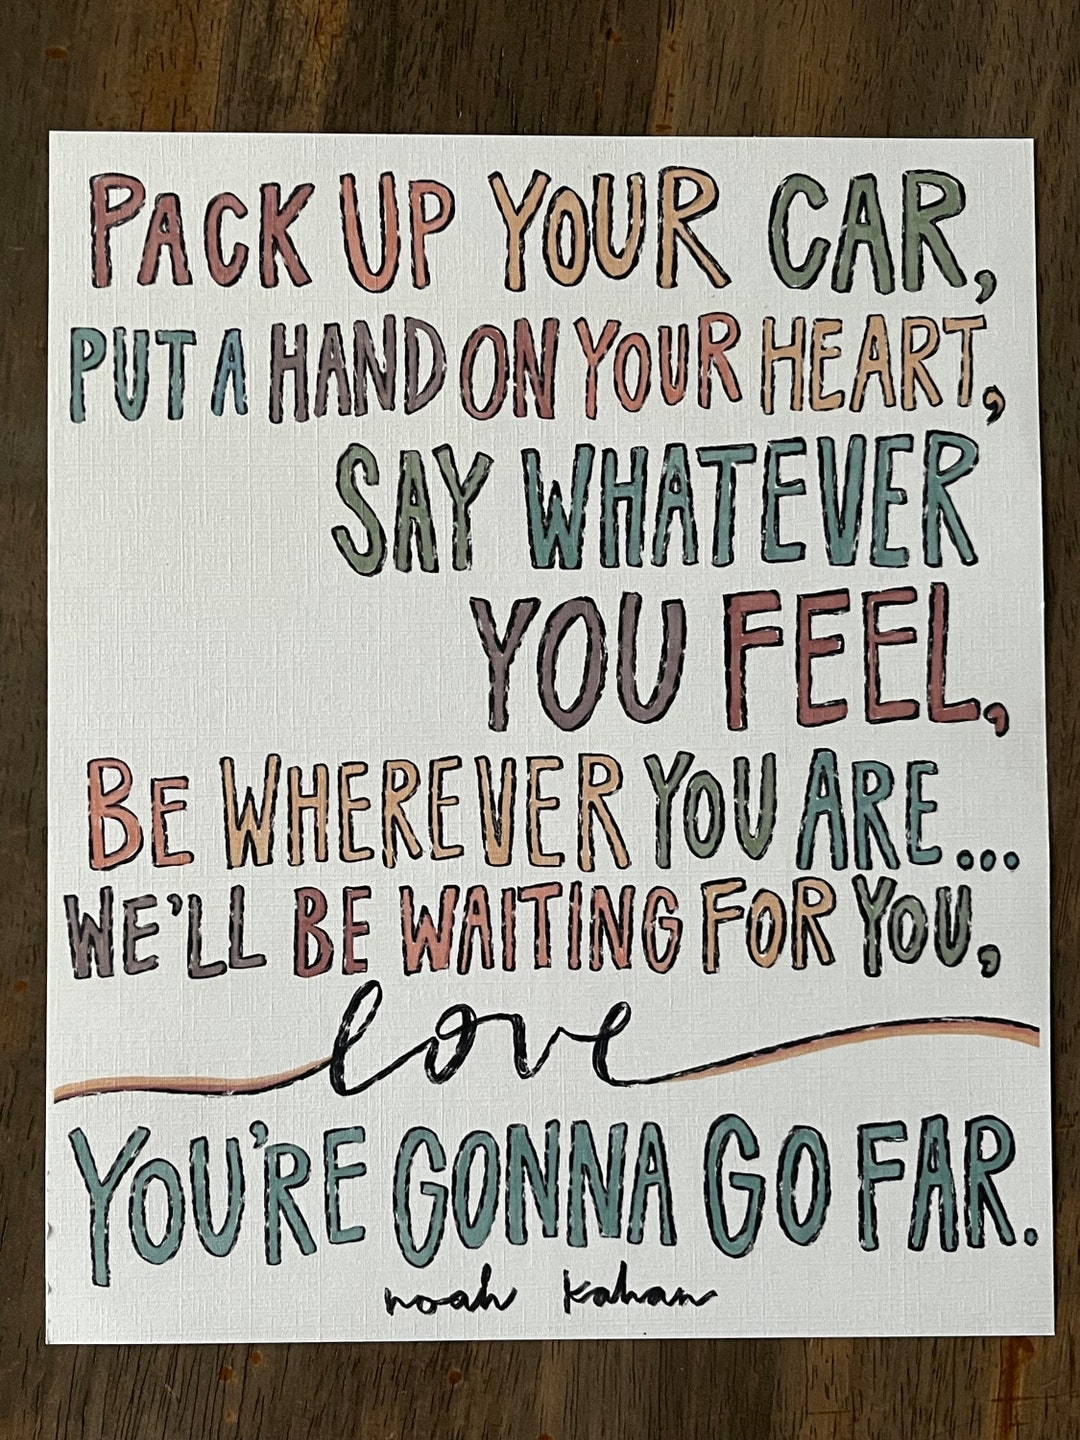 PACK UP YOUR CAR,
PUT A HAND ON YOUR HEART,
SAY WHATEVER
YOU FEEL,
BE WHEREVER YOU ARE...
WE'LL BE WAITING FOR YOU,
love
YOU'RE GONNA GO FAR.
noah kahan